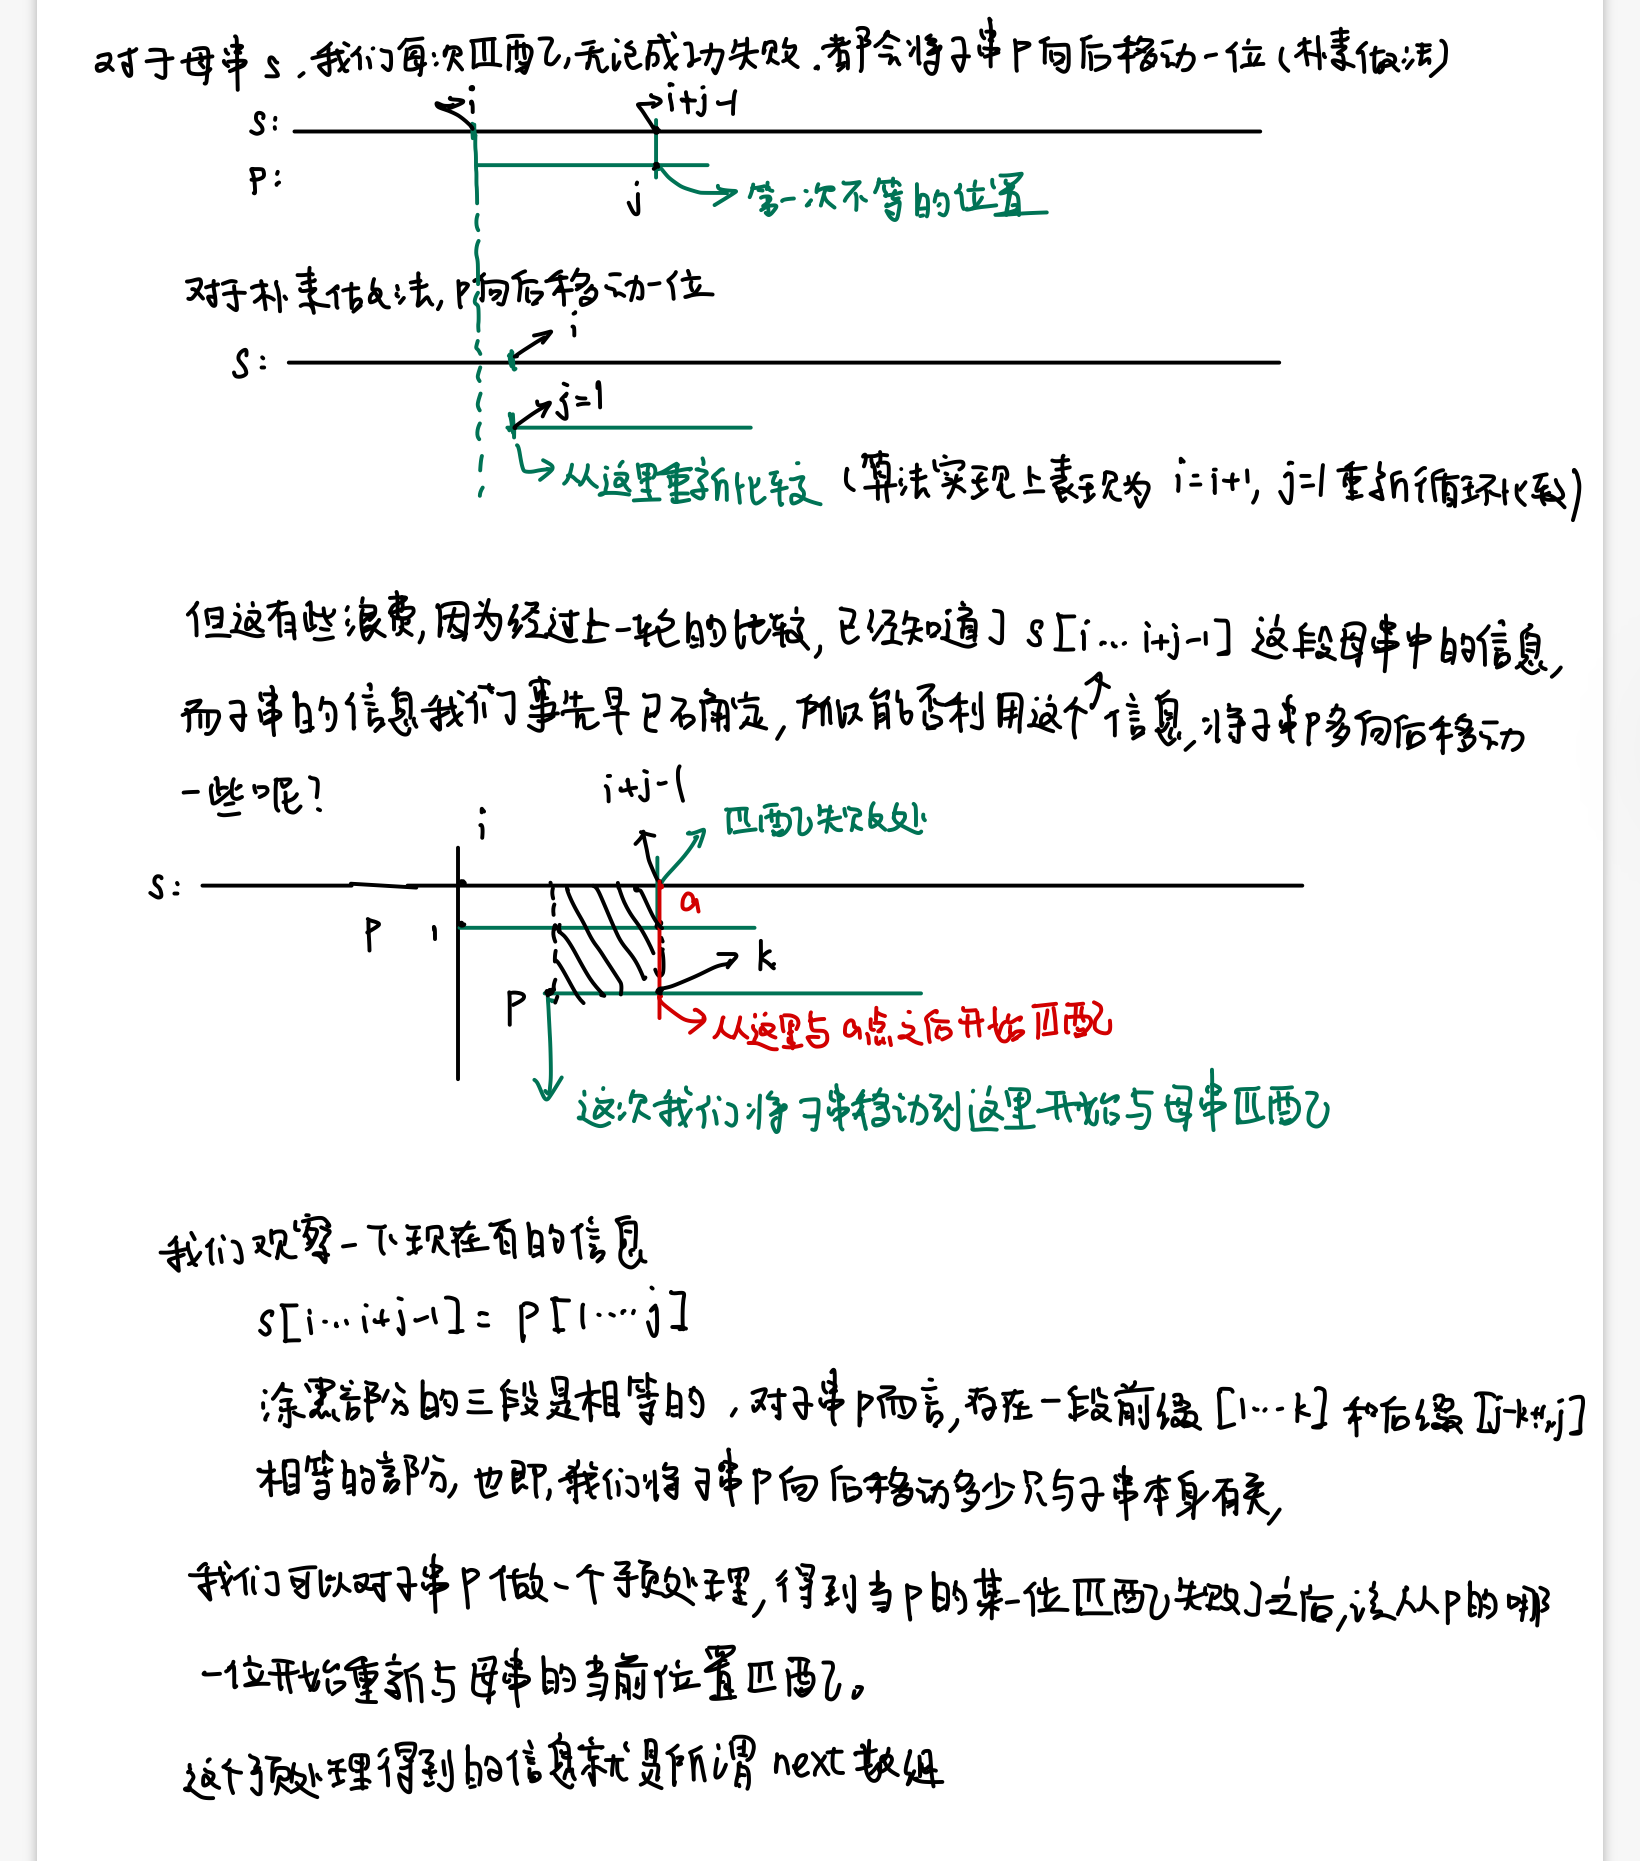 对于母串 s,我们每次匹配,无论成功失败.都会将子串P向后移动一位(朴素做法)
i
i+j-1
S:
P:
j
第一次不等的位置
对于朴素做法,P向后移动一位
i
S:
j=1
从这里重新比较 (算法实现上表现为 i=i+1, j=1 重新循环比较)
但这有些浪费,因为经过上一轮的比较,已经知道了 s[i...i+j-1] 这段母串中的信息,
而子串的信息我们事先早已确定,所以能否利用这个信息,将子串P多向后移动
一些呢?
i+j-1
i
匹配失败处
S:
a
P 1
k
P
从这里与a点之后开始匹配
这次我们将子串移动到这里开始与母串匹配
我们观察一下现在有的信息
s[i...i+j-1] = P[1....j]
涂黑部分的三段是相等的,对子串P而言,存在一段前缀[1...k]和后缀[j-k+1,j]
相等的部分,也即,我们将子串P向后移动多少只与子串本身有关,
我们可以对子串P做一个预处理,得到当P的某一位匹配失败了之后,该从P的哪
一位开始重新与母串的当前位置匹配。
这个预处理得到的信息就是所谓 next 数组